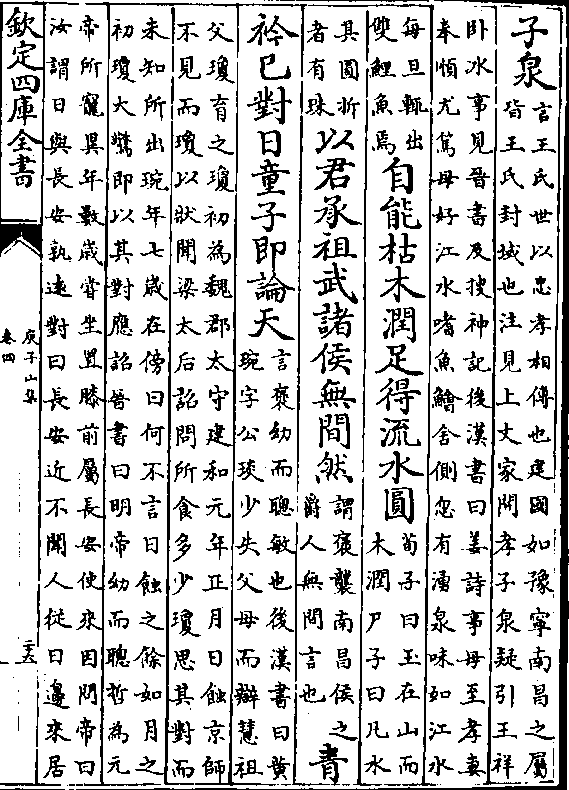 子泉言王氏世以忠孝相傳也建國如豫寧南昌之屬
皆王氏封域也注見上文家問孝子泉疑引王祥
卧冰事見晉書及搜神記後漢書曰姜詩事母至孝妻
奉慎尤篤母好江水嗜魚鱠舍側忽有湧泉味如江水
每旦輒出
雙鯉魚焉
自能枯木潤足得流水圓
荀子曰玉在山而
木潤尸子曰凡水
其圓折
者有珠
以君承祖武諸侯無間然
謂褒襲南昌侯之
爵人無間言也
青
衿已對日童子即論天
言褒幼而聰敏也後漢書曰黄
琬字公琰少失父母而辯慧祖
父瓊育之瓊初為魏郡太守建和元年正月日蝕京師
不見而瓊以狀聞梁太后詔問所食多少瓊思其對而
未知所出琬年七歲在傍曰何不言日蝕之餘如月之
初瓊大驚即以其對應詔晉書曰明帝幼而聰哲為元
帝所寵異年數歲嘗坐置膝前屬長安使來因問帝曰
汝謂日與長安孰遠對曰長安近不聞人從日邊來居
欽定四庫全書
庾子山集
卷四
三十五